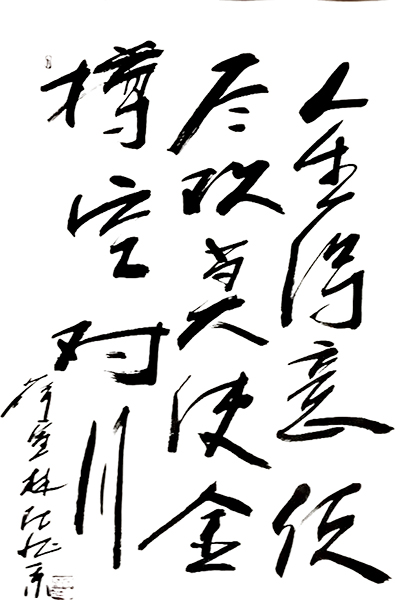 人生得意须
尽欢莫使金
樽空对月